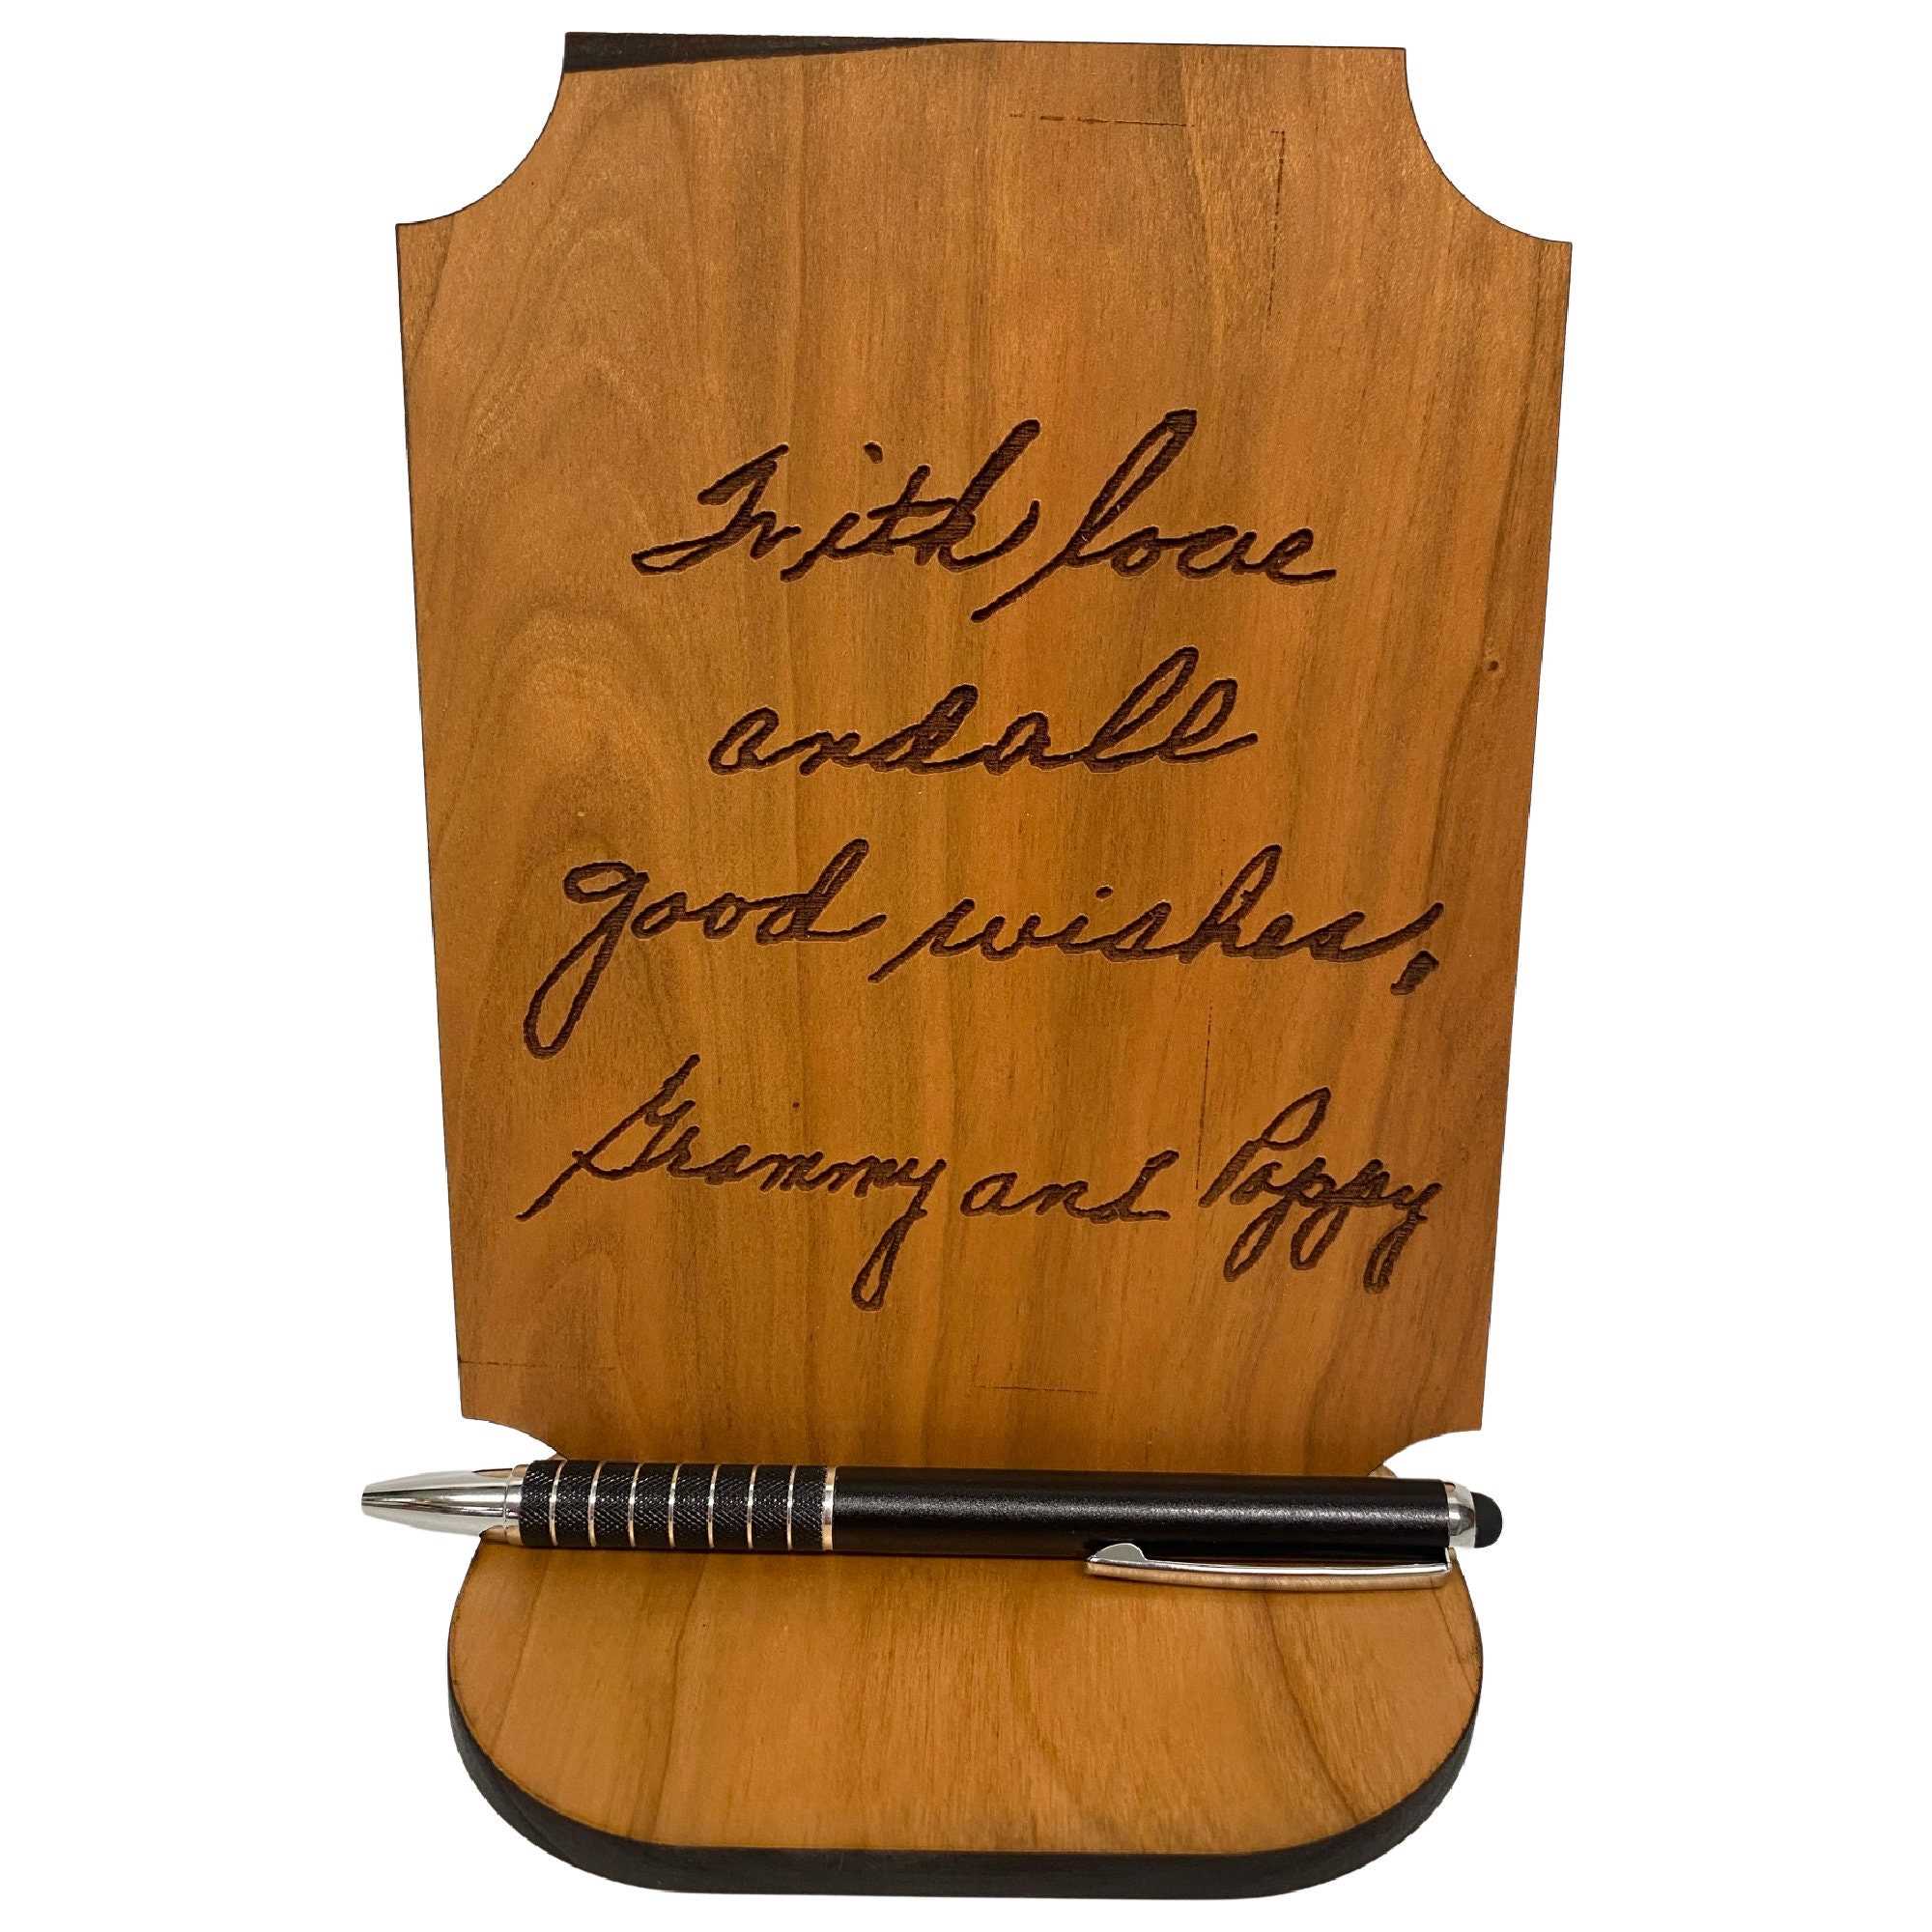 With love
and all
good wishes,
Grammy and Poppy